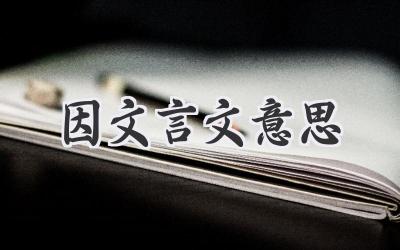 因文言文意思